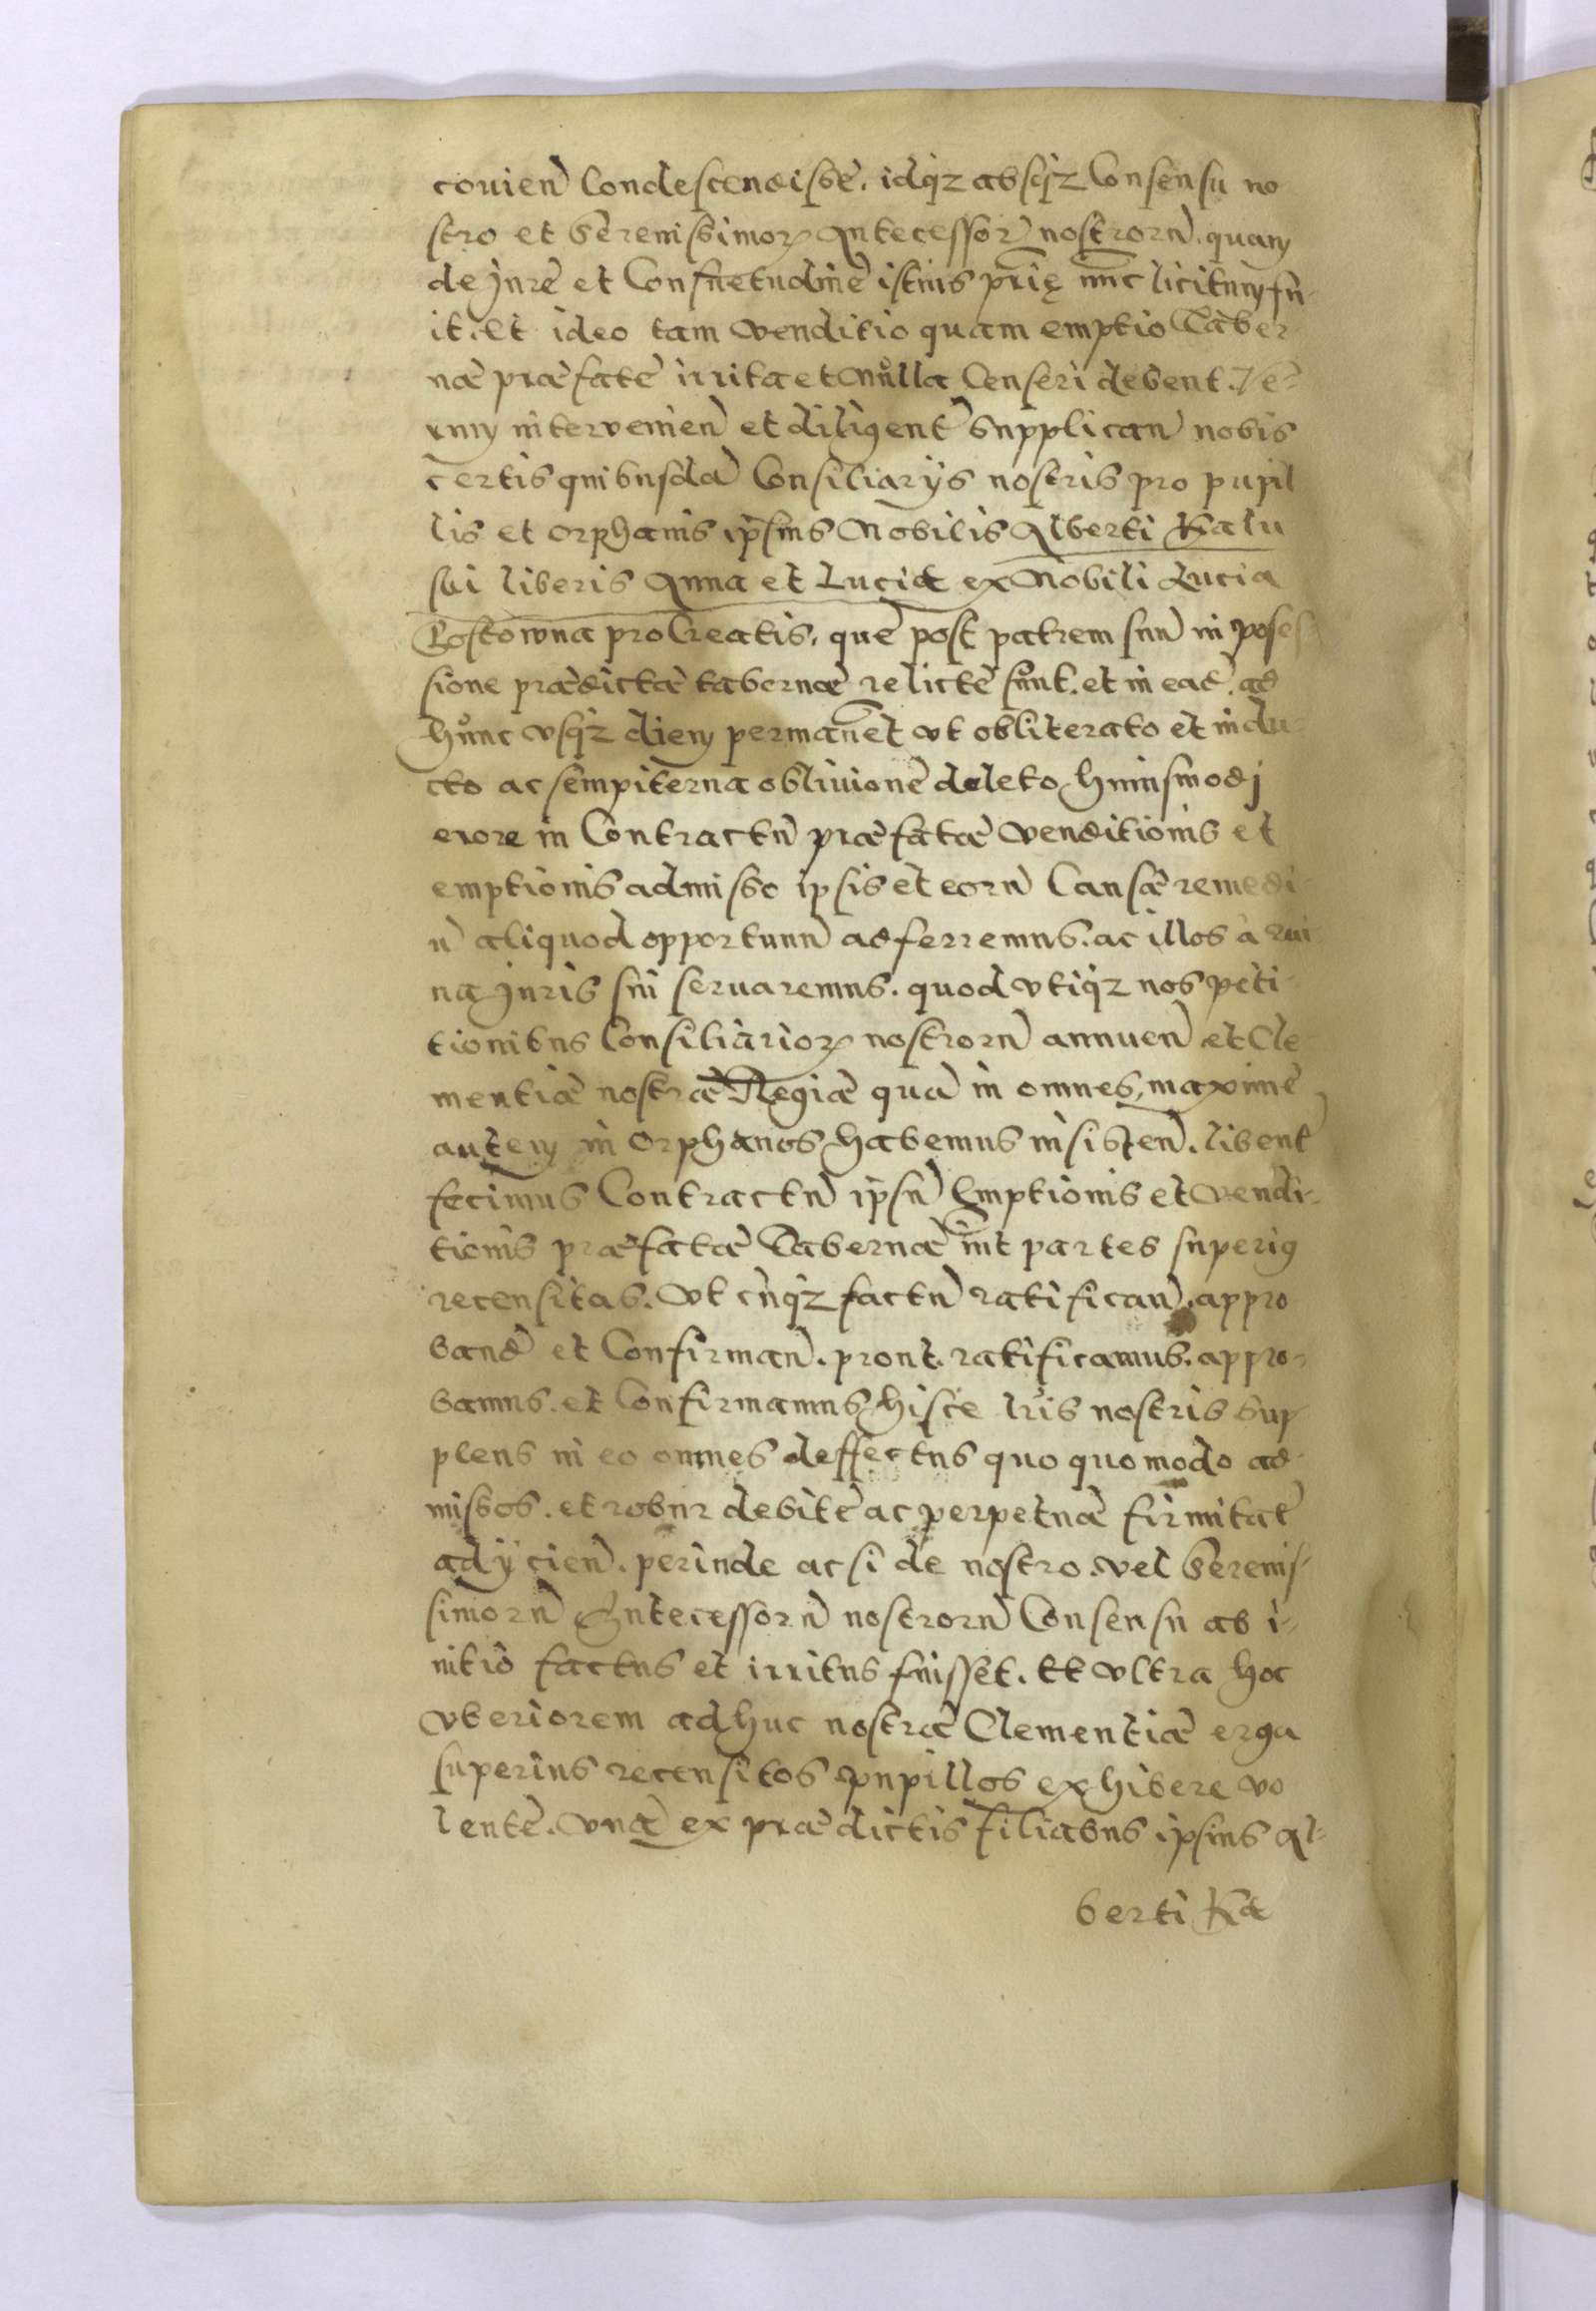 couien̄ Condescendisse. idq₃ absq₃ Consensu no
stro et Serenissimoꝝ Antecessor̄ nostrorū. quam
de Jure et Consuetudine istius pr̄ię nūc licitum fu-
it. et ideo tam venditio quam emptio Taber
næ præfatæ irrita et nulla Censeri debent. Ve-
rum intervenien̄ et diligent̄ Supplican̄ nobis
certis quibusdā Consiliarijs nostris pro pupil
lis et orphanis ip̄sius Nobilis Alberti Kalu
ski liberis Anna et Lucia ex Nobili Lucia
Costowna proCreatis. quæ post patrem suū in poses
sione prædictæ tabernæ relictæ sunt. et in ead̄. ad
hunc vsq₃ diem permanēt vt obliterato et indu-
cto ac sempiterna obliuione deleto huiusmodj
erore in Contractū præfatæ venditionis et
emptionis admisso ipsis et eorū Causæ remedi-
ū aliquod opportunū adferremus. ac illos à rui
na Juris sui seruaremus. quod vtiq₃ nos peti-
tionibus Consiliarioꝝ nostrorū annuen̄ et Cle
mentiæ nostræ Regiæ quā in omnes, maxime
autem in orphanos habemus insisten̄. libent̄
fecimus Contractū ip̄sū Emptionis et vendi-
tionis præfatæ Tabernæ int̄ partes superiꝯ
recensitas. Vt cūq₃ factū ratifican̄. appro
band̄ et Confirman̄. prout. ratificamus. appro-
bamus. et Confirmamus hisce lr̄is nostris Sup
plens in eo omnes deffectus quo quomodo ad-
missos. et robur debitē ac perpetuæ firmitat̄
adijcien̄. perinde ac si de nostro. vel Serenis-
simorū Antecessorū nostrorū Consensu ab i-
nitio factus et irritus fuisset. Et vltra hoc
vteriorem adhuc nostræ Clementiæ erga
superius recensitos pupillos exhibere vo
lentē. vnā ex prædictis filiabus ipsius Al-
berti Ka